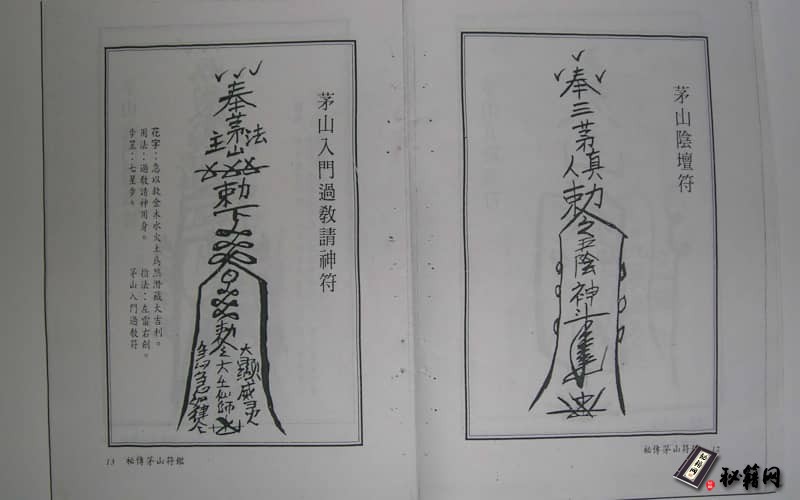 茅山陰壇符
奉三茅真人勅令
陰神
秘傳茅山符
茅山入門過教請神符
奉茅山法主
勅下
勅令
大顯威灵
花字：急以救金木水火土為煞潛藏大吉利。
用法：過教請神用身。 捻法：左雷右劍。
步罡：七星步。 茅山入門過教符
13 秘傳茅山符鑑
秘籍网